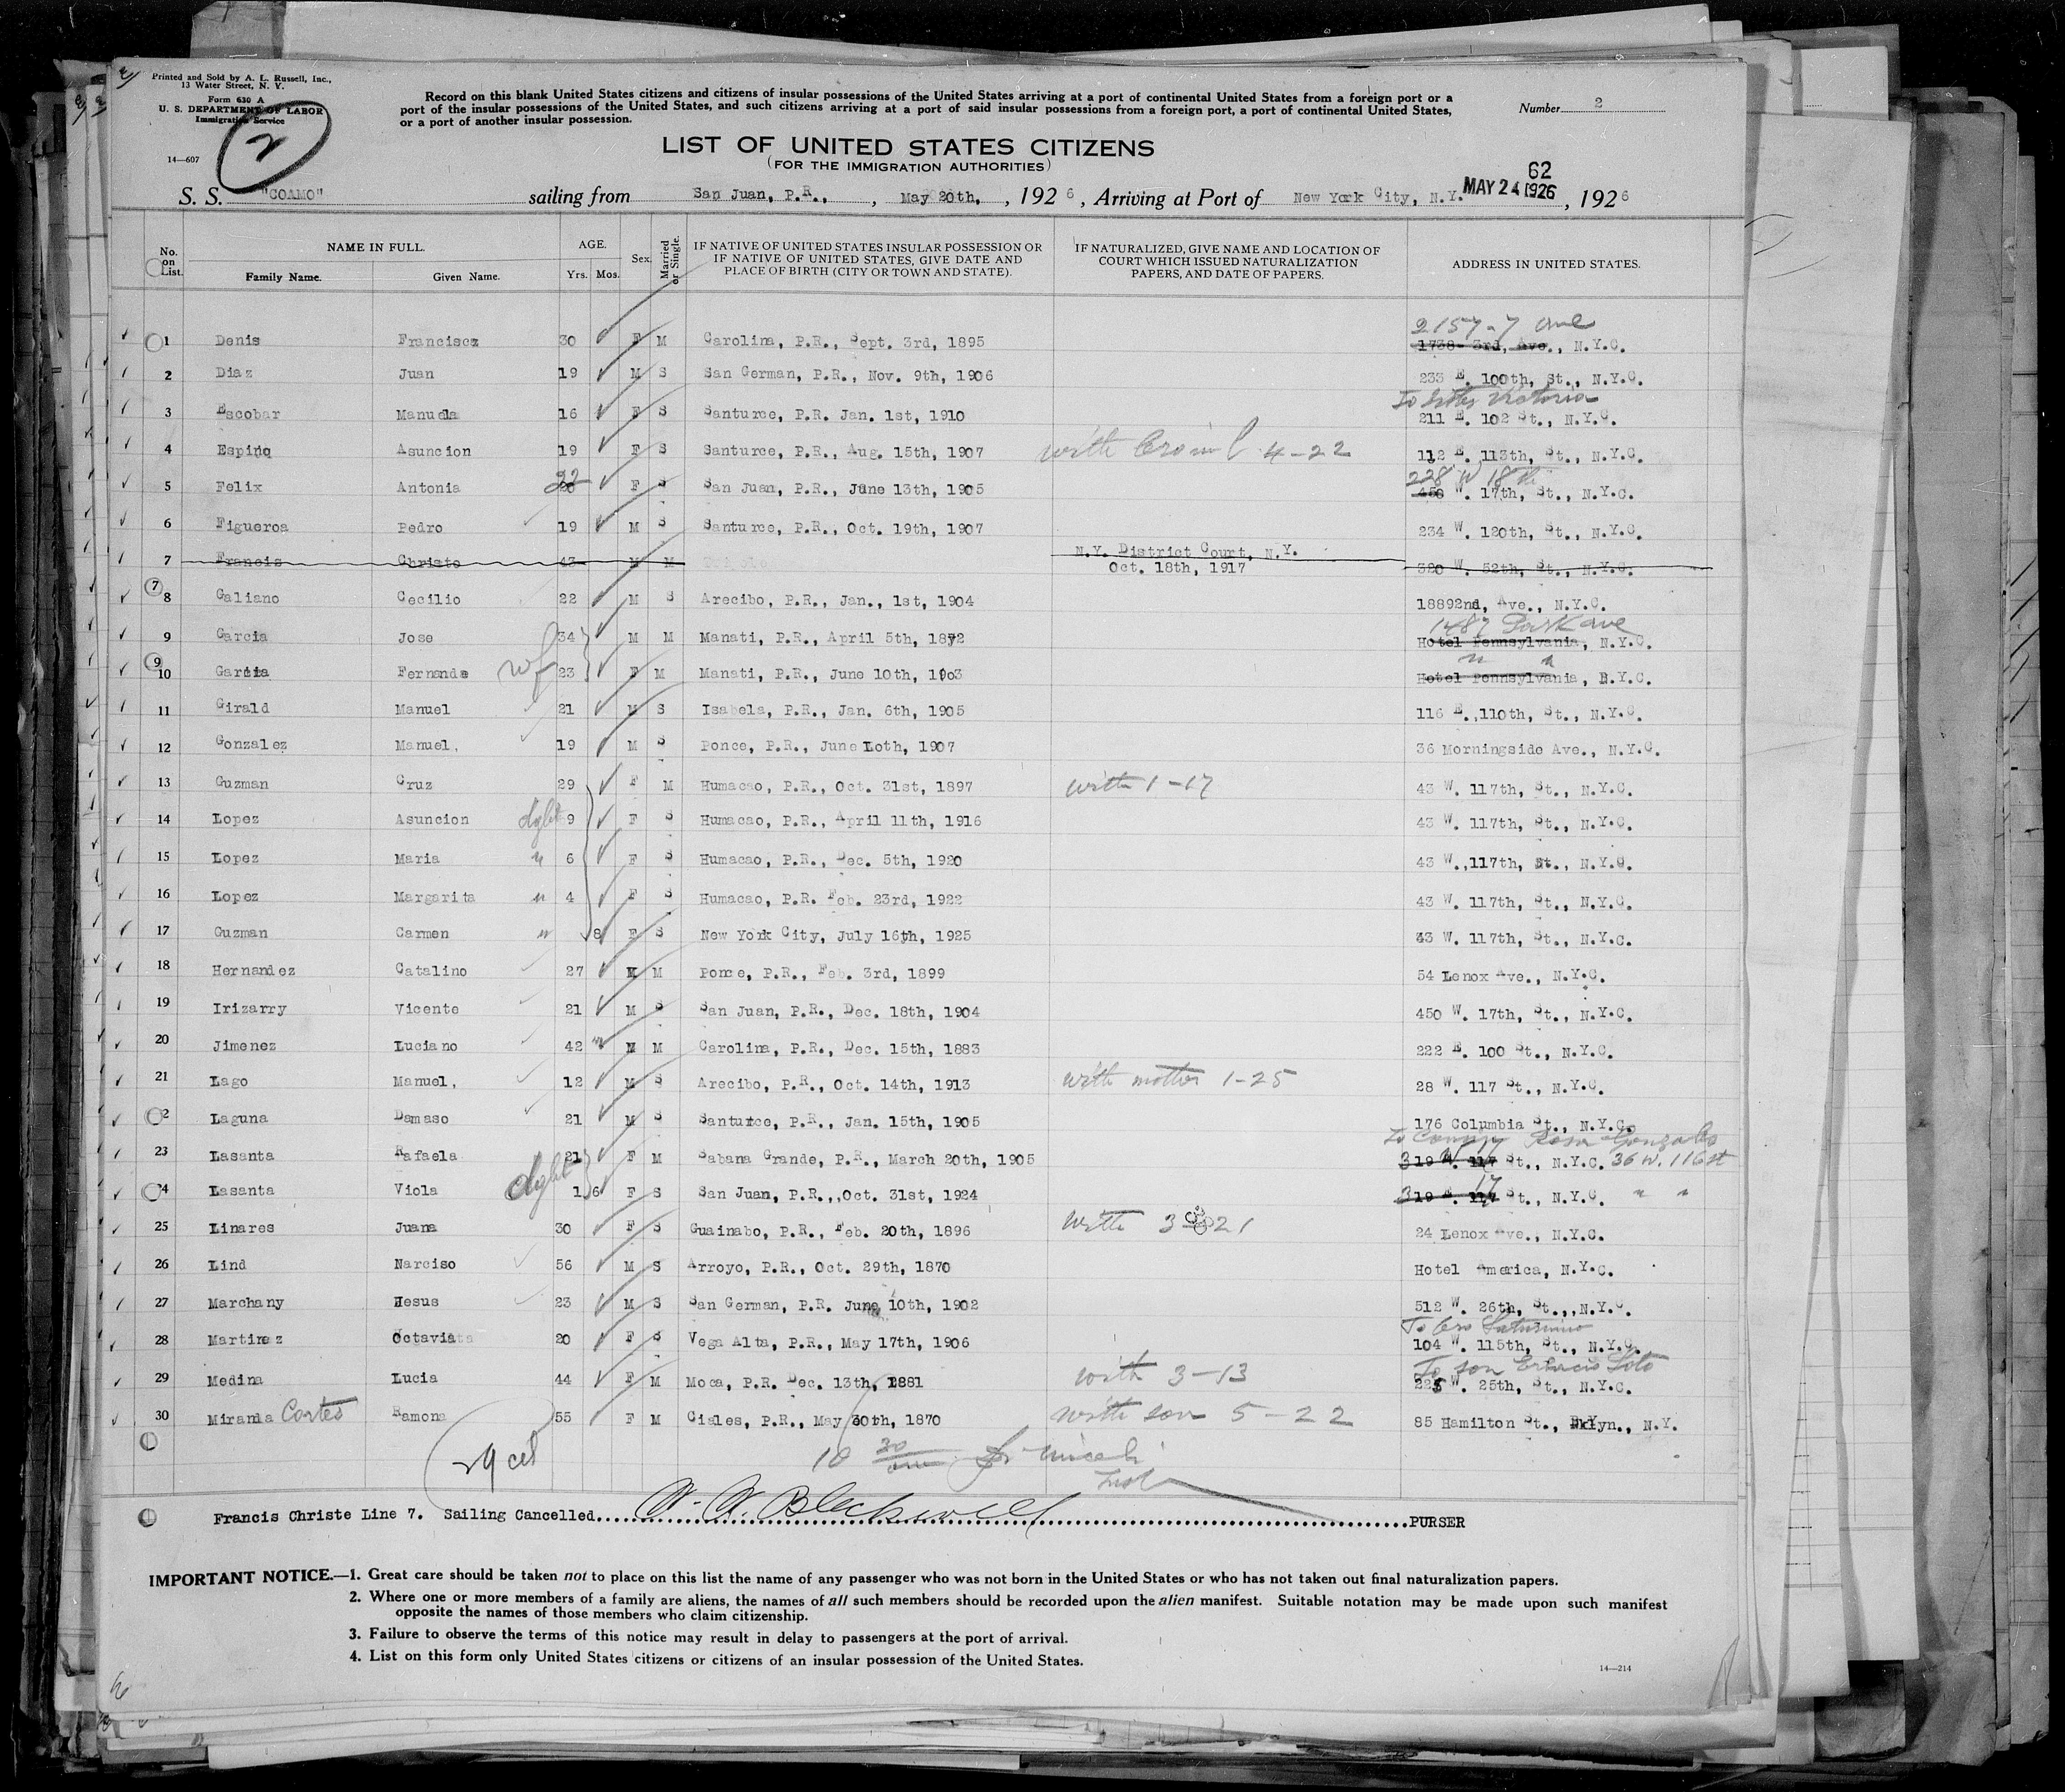 Printed and Sold by A. L. Russell, Inc.,
13 Water Street, N. Y.
Form 630 A
U. S. DEPARTMENT OF LABOR
Immigration Service
2
14—607
Record on this blank United States citizens and citizens of insular possessions of the United States arriving at a port of continental United States from a foreign port or a
port of the insular possessions of the United States, and such citizens arriving at a port of said insular possessions from a foreign port, a port of continental United States,
or a port of another insular possession.
Number 2
LIST OF UNITED STATES CITIZENS
(FOR THE IMMIGRATION AUTHORITIES)
62
S. S. "COAMO" sailing from San Juan, P.R., , May 20th, , 1926 , Arriving at Port of New York City, N.Y. MAY 24 1926 , 1926
No. on List. NAME IN FULL. Family Name. Given Name. AGE. Yrs. Mos. Sex. Married or Single. IF NATIVE OF UNITED STATES INSULAR POSSESSION OR IF NATIVE OF UNITED STATES, GIVE DATE AND PLACE OF BIRTH (CITY OR TOWN AND STATE). IF NATURALIZED, GIVE NAME AND LOCATION OF COURT WHICH ISSUED NATURALIZATION PAPERS, AND DATE OF PAPERS. ADDRESS IN UNITED STATES.
2157-7 Ave
1 Denis Francisca 30 F M Carolina, P.R., Sept. 3rd, 1895 1738- 3rd, Ave., N.Y.C.
2 Diaz Juan 19 M S San German, P.R., Nov. 9th, 1906 233 E. 100th, St., N.Y.C.
To Sister Victoria
3 Escobar Manuela 16 F S Santurce, P.R. Jan. 1st, 1910 211 E. 102 St., N.Y.C.
4 Espino Asuncion 19 F S Santurce, P.R., Aug. 15th, 1907 with 4-22 112 E. 113th, St., N.Y.C.
228 W 18th
5 Felix Antonia 22 F S San Juan, P.R., June 13th, 1905 450 W. 17th, St., N.Y.C.
6 Figueroa Pedro 19 M S Santurce, P.R., Oct. 19th, 1907 234 W. 120th, St., N.Y.C.
7 Francis Christe 43 M M N.Y. District Court, N.Y. 320 W. 52th, St., N.Y.C.
Oct. 18th, 1917
7 8 Galiano Cecilio 22 M S Arecibo, P.R., Jan., 1st, 1904 18892nd, Ave., N.Y.C.
1487 Park ave
9 Garcia Jose 34 M M Manati, P.R., April 5th, 1892 Hotel Pennsylvania, N.Y.C.
" "
9 10 Garcia Fernande wf 23 F M Manati, P.R., June 10th, 1903 Hotel Pennsylvania, N.Y.C.
11 Girald Manuel 21 M S Isabela, P.R., Jan. 6th, 1905 116 E.,110th, St., N.Y.C.
12 Gonzalez Manuel, 19 M S Ponce, P.R., June 10th, 1907 36 Morningside Ave., N.Y.C.
13 Guzman Cruz 29 F M Humacao, P.R., Oct. 31st, 1897 with 1-17 43 W. 117th, St., N.Y.C.
14 Lopez Asuncion dght 9 F S Humacao, P.R., April 11th, 1916 43 W. 117th, St., N.Y.C.
15 Lopez Maria " 6 F S Humacao, P.R., Dec. 5th, 1920 43 W.,117th, St., N.Y.C.
16 Lopez Margarita " 4 F S Humacao, P.R. Feb. 23rd, 1922 43 W. 117th, St., N.Y.C.
17 Guzman Carmen " 8 F S New York City, July 16th, 1925 43 W. 117th, St., N.Y.C.
18 Hernandez Catalino 27 M M Ponce, P.R., Feb. 3rd, 1899 54 Lenox Ave., N.Y.C.
19 Irizarry Vicente 21 M S San Juan, P.R., Dec. 18th, 1904 450 W. 17th, St., N.Y.C.
20 Jimenez Luciano 42 M M Carolina, P.R., Dec. 15th, 1883 222 E. 100 St., N.Y.C.
21 Lago Manuel, 12 M S Arecibo, P.R., Oct. 14th, 1913 with mother 1-25 28 W. 117 St., N.Y.C.
22 Laguna Damaso 21 M S Santurce, P.R., Jan. 15th, 1905 176 Columbia St., N.Y.C.
To Rosa Gonzales
23 Lasanta Rafaela 21 F M Sabana Grande, P.R., March 20th, 1905 319 W. 117 St., N.Y.C. 36 W. 116 st
24 Lasanta Viola dght 1 6 F S San Juan, P.R.,,Oct. 31st, 1924 319 E. 117 St., N.Y.C. " "
25 Linares Juana 30 F S Guainabo, P.R., Feb. 20th, 1896 with 3 21 24 Lenox Ave., N.Y.C.
26 Lind Narciso 56 M S Arroyo, P.R., Oct. 29th, 1870 Hotel America, N.Y.C.
27 Marchany Hesus 23 M S San German, P.R. June 10th, 1902 512 W. 26th, St.,,N.Y.C.
To bro Saturnino
28 Martinez Octavia 20 F S Vega Alta, P.R., May 17th, 1906 104 W. 115th, St., N.Y.C.
To son Soto
29 Medina Lucia 44 F M Moca, P.R. Dec. 13th, 1881 with 3-13 225 W. 25th, St., N.Y.C.
30 Miranda Cortes Ramona 55 F M Ciales, P.R., May 30th, 1870 with son 5-22 85 Hamilton St., Bklyn., N.Y.
29 cit
10 30
Francis Christe Line 7. Sailing Cancelled. Blackwell PURSER
IMPORTANT NOTICE.—1. Great care should be taken not to place on this list the name of any passenger who was not born in the United States or who has not taken out final naturalization papers.
2. Where one or more members of a family are aliens, the names of all such members should be recorded upon the alien manifest. Suitable notation may be made upon such manifest
opposite the names of those members who claim citizenship.
3. Failure to observe the terms of this notice may result in delay to passengers at the port of arrival.
4. List on this form only United States citizens or citizens of an insular possession of the United States.
14—214